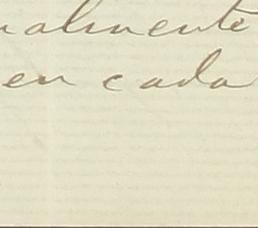 ualmente
en cada